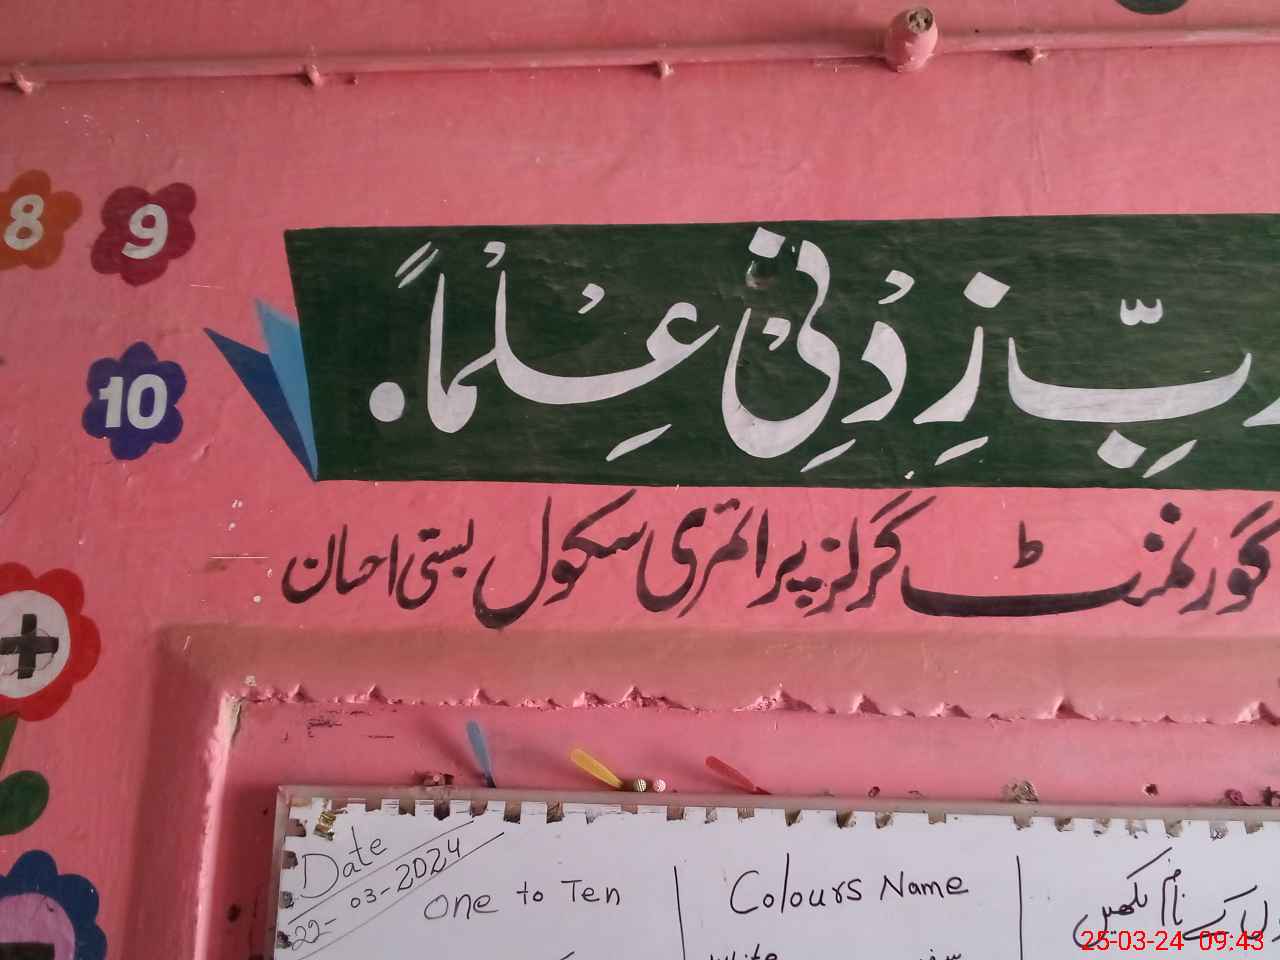 8
9
10
رَبِّ زِدْنِیْ عِلْماً۔
گورنمنٹ گرلز پرائمری سکول بستی احسان
+
Date
22-03-2024
One to Ten
Colours Name
کے نام لکھیں
25-03-24 09:43